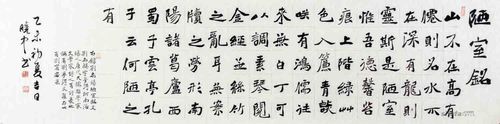 陋室銘
山不在高有
僊則名水不
在深有龍則
靈斯是陋室
惟吾德馨苔
痕上階綠草
色入簾青談
笑有鴻儒往
來無白丁可
以調素琴閱
金經無絲竹
之亂耳無案
牘之勞形南
陽諸葛廬西
蜀子雲亭孔
子云何陋之
有
乙未初夏吉日
書